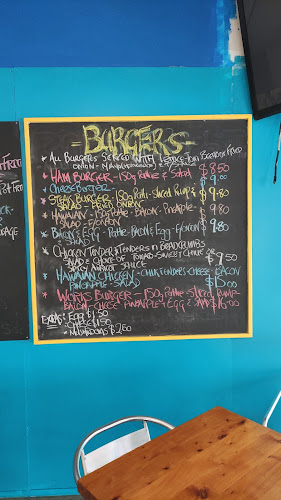 -BURGERS-
* ALL BURGERS SERVED WITH LETTUCE-TOM BEETROOT FRIED
ONION
* HAM BURGER - 150g Pattie & Salad $8.50
* Cheese Burger $9.00
* STEAK BURGER - 150g
SALAD - FRIED ONION $9.80
* HAWAIIAN - 150g Pattie - BACON - Pineapple -
SALAD - F/ONION $9.80
* BACON & EGG - Pattie - Bacon & Egg - F/ONION
- SALAD $9.80
* CHICKEN TENDER - TENDERS IN BREADCRUMBS
SALAD & CHOICE OF TOMATO - SWEET CHILLI
SAUCE $9.50
* HAWAIIAN CHICKEN - CHK TENDERS - CHEESE - BACON
PINEAPPLE - SALAD $15.00
* WORKS BURGER - 150g Pattie - SLICED RUMP -
BACON - CHEESE PINEAPPLE & EGG $16.00
EXTRAS: EGG $1.50
* CHEESE $1.50
* MUSHROOMS $2.60